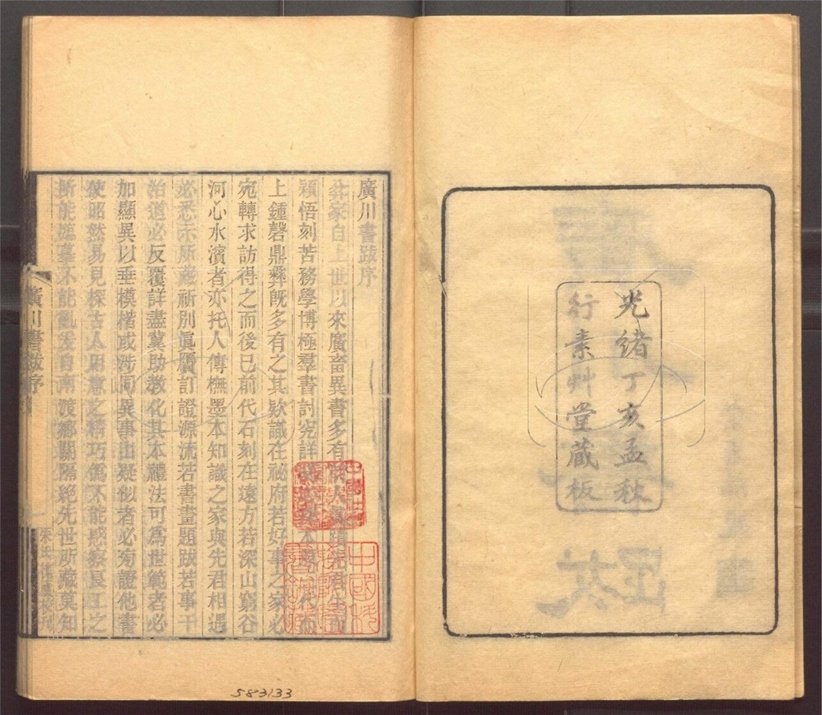 光緒丁亥孟秋
行素艸堂藏板
廣川書跋序
弅家自上世以來廣畜異書多有
穎悟刻苦務學博極羣書討究詳
上鍾磬鼎彝旣多有之其欵識在祕府若好事之家必
宛轉求訪得之而後已前代石刻在遠方若深山窮谷
河心水濱者亦托人傳橅墨本知識之家與先君相遇
必悉示所藏祈別眞贋訂證源流若書畫題跋若事干
治道必反覆詳盡冀助敎化其本禮法可爲世範者必
加顯異以垂模楷或涉同異事出疑似者必旁證他書
使昭然易見探古人用意之精巧僞不能惑察良工之
所能臨摹不能亂
自南渡鄉關隔絕先世所藏莫知
廣川書跋序
583133